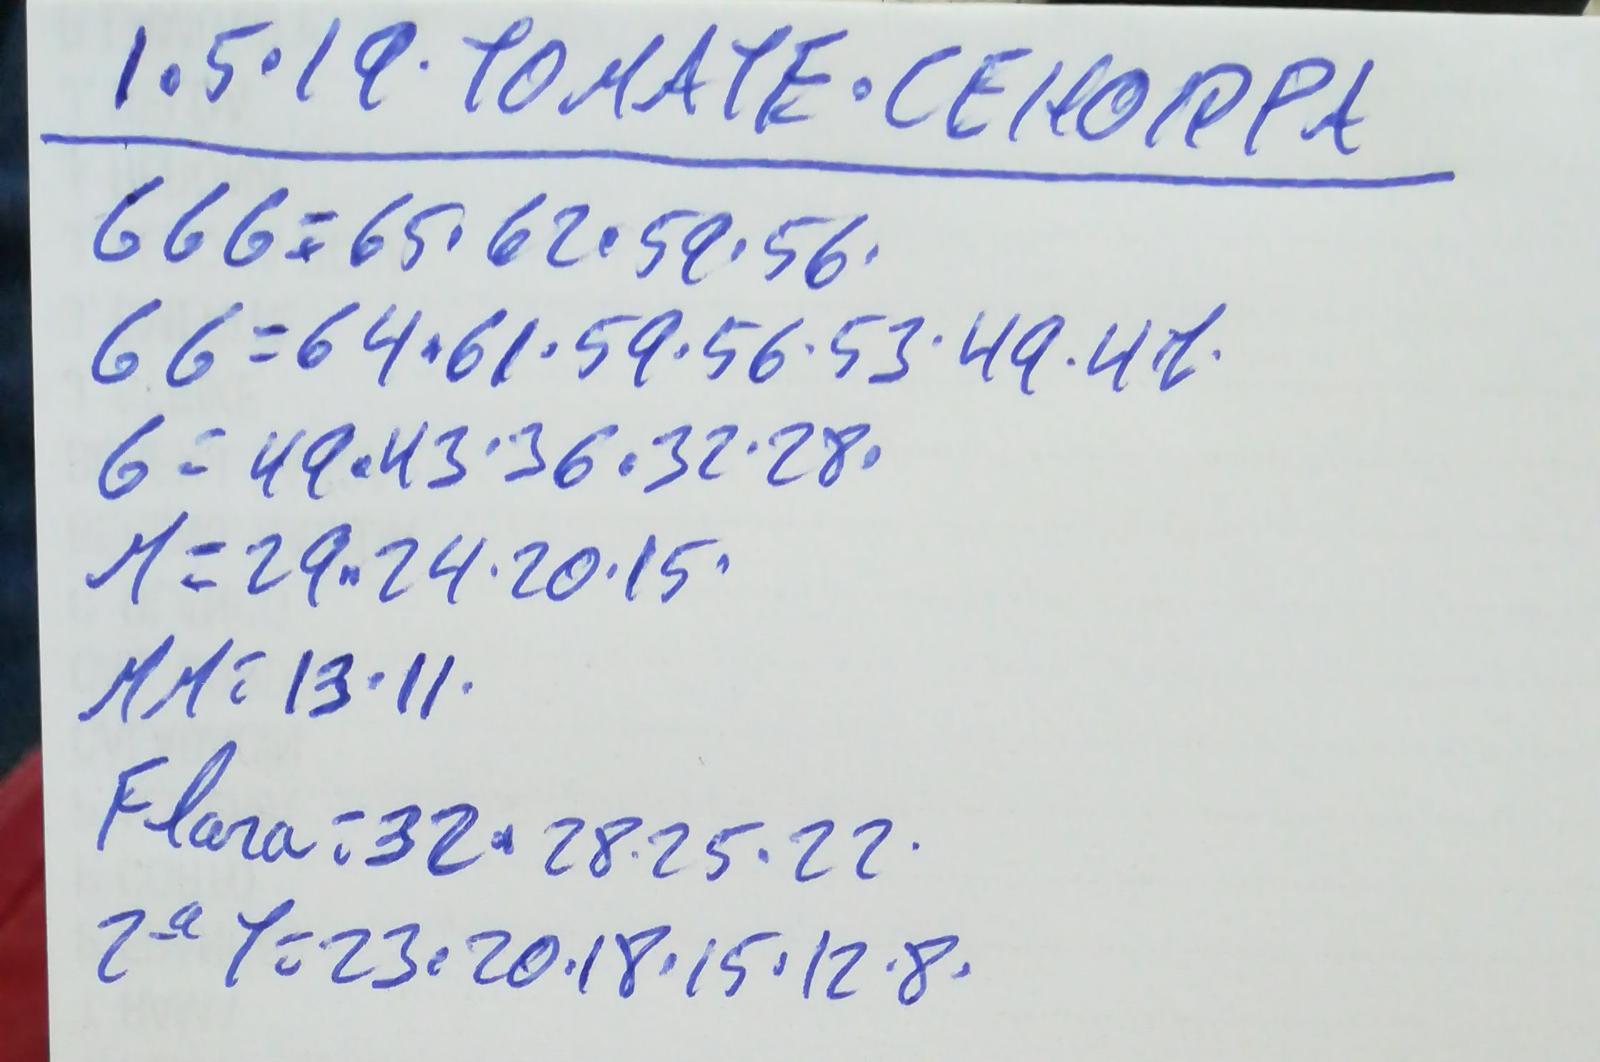 1.5.19. TOMATE.CEHORPA
666=65.62.59.56.
66=64.61.59.56.53.49.47.
6=49.43.36.32.28.
M=29.24.20.15.
MM=13.11.
Flora=32.28.25.22.
2ª T=23.20.18.15.12.8.